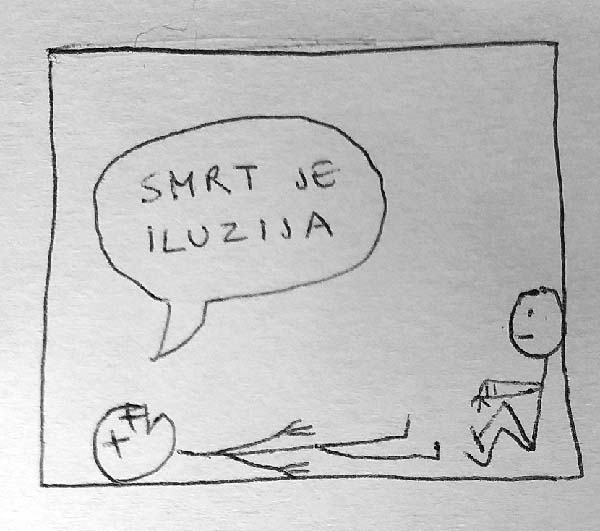 SMRT JE
ILUZIJA